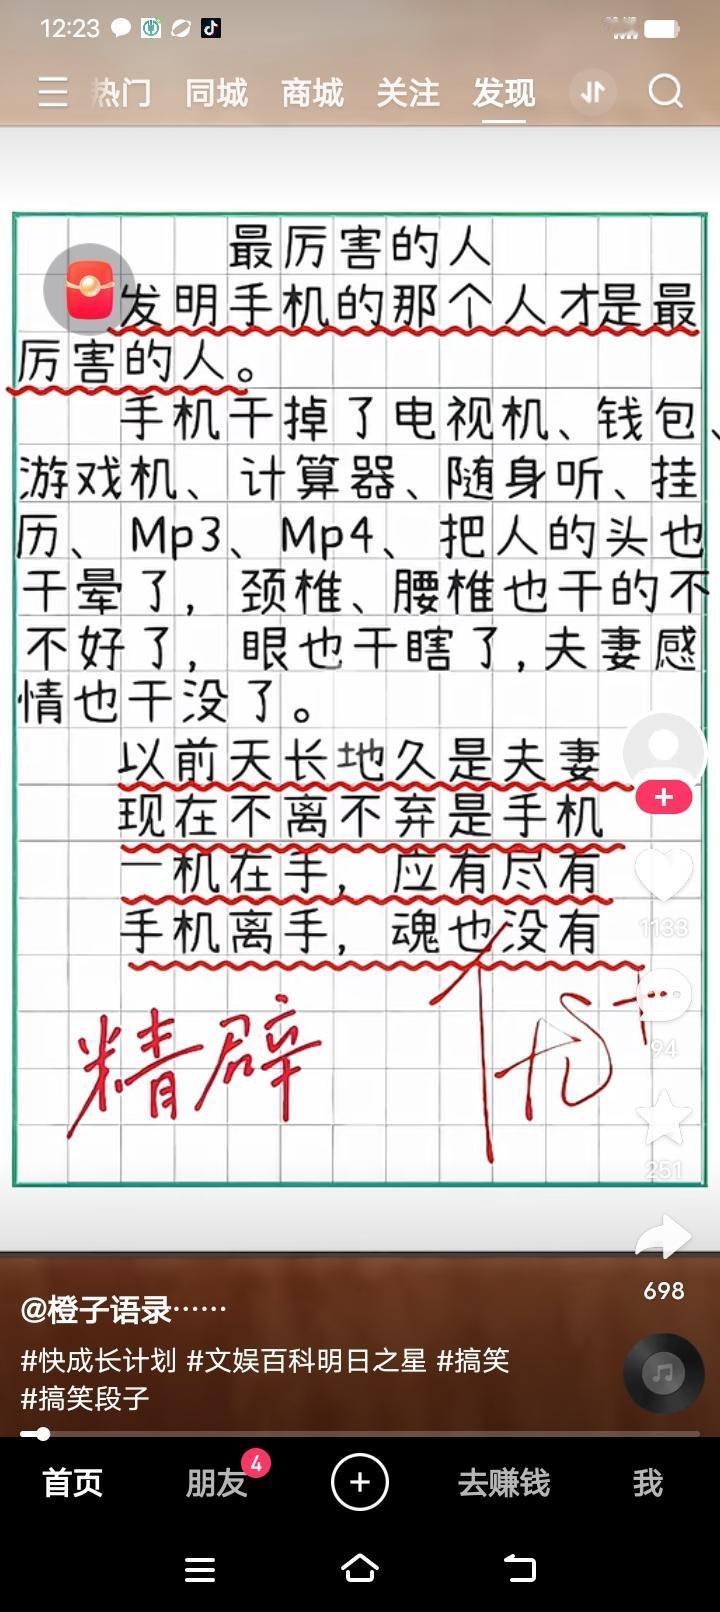 12:23
热门 同城 商城 关注 发现
最厉害的人
发明手机的那个人才是最
厉害的人。
手机干掉了电视机、钱包、
游戏机、计算器、随身听、挂
历、Mp3、Mp4、把人的头也
干晕了，颈椎、腰椎也干的不
不好了，眼也干瞎了,夫妻感
情也干没了。
以前天长地久是夫妻
现在不离不弃是手机
一机在手，应有尽有
手机离手，魂也没有
精辟 优+
1133
94
251
698
@橙子语录……
#快成长计划 #文娱百科明日之星 #搞笑
#搞笑段子
首页 朋友 4 去赚钱 我